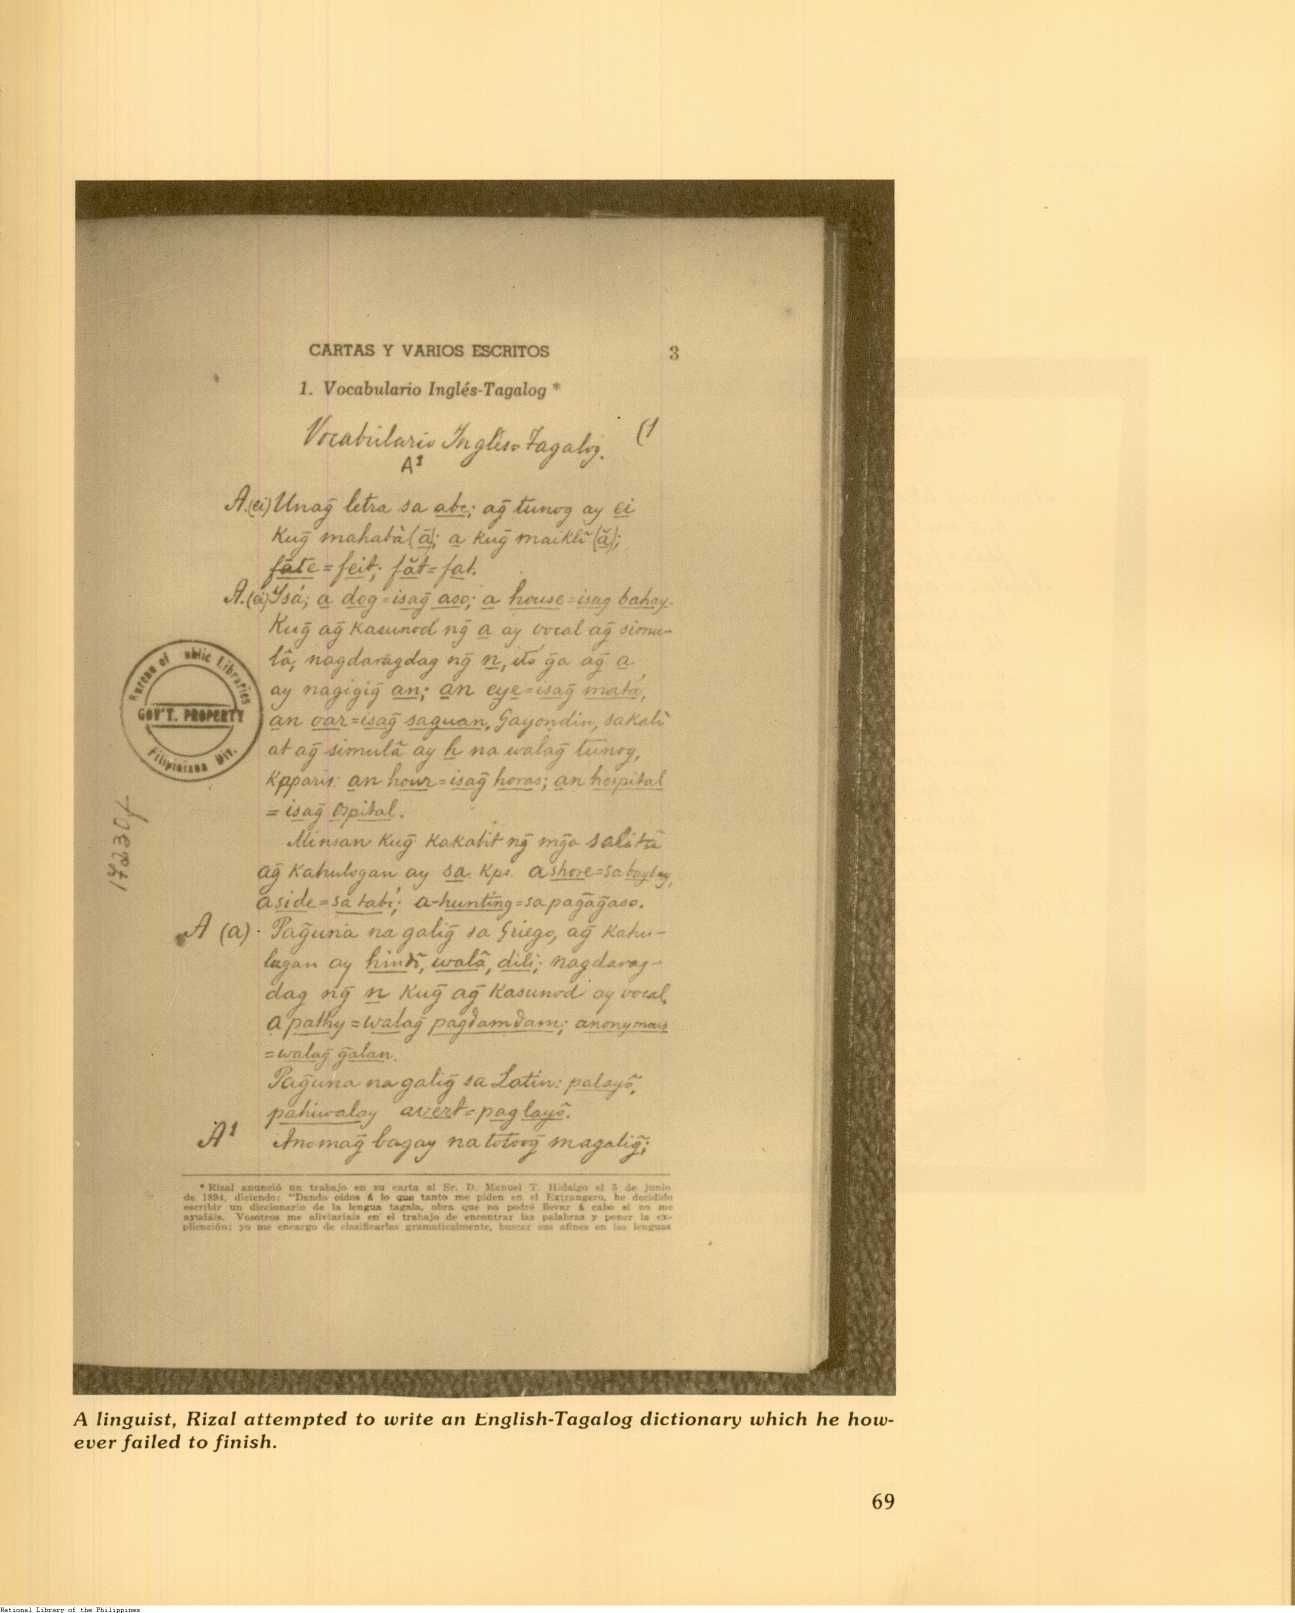 CARTAS Y VARIOS ESCRITOS 3
1. Vocabulario Inglés-Tagalog *
Vocabulario Inglés-Tagalog. (1
A¹
A.(ei) Unag̃ letra sa abc; ag̃ tunog ay ei
Kug̃ mahabà (ā); a kug̃ maiklî (ă);
fāte = feit; făt = fat.
A.(ei) Isá; a dog = isag̃ aso; a house = isag bahay.
Kug̃ ag̃ kasunod ng̃ a ay vocal ag̃ simu-
lâ, nagdaragdag ng̃ n, itó g̃a ag̃ a
ay nagigig̃ an; an eye = isag̃ matá,
an oar = isag̃ saguan, Gayondin, sakali
at ag̃ simulâ ay h na walag̃ tunog,
Kpparis: an hour = isag̃ horas; an hospital
= isag̃ ospital.
Minsan kug̃ kakabit ng̃ mg̃a salitâ
ag̃ kahulogan ay sa. Kps. ashore = sa baybay,
aside = sa tabí; a-hunting = sa pag̃ag̃aso.
A (a) · Pag̃una na galig̃ sa Griego, ag̃ kahu-
lugan ay hindî, walâ, dili; nagdarag-
dag ng̃ n kug̃ ag̃ kasunod ay vocal,
apathy = walag̃ pagdamdam; anonymous
= walag̃ g̃alan.
Pag̃una na galig̃ sa Latin: palayô,
pahiwalay avert = paglayô.
A¹ Anomag̃ bagay na totoog̃ magalig̃;
* Rizal anunció un trabajo en su carta al Sr. D. Manuel T. Hidalgo el 5 de junio
de 1894, diciendo: "Dando oidos á lo que tanto me piden en el Extrangero, he decidido
escribir un diccionario de la lengua tagala, obra que no podré llevar á cabo si no me
ayudáis. Vosotros me aliviaríais en el trabajo de encontrar las palabras y poner la ex-
plicación; yo me encargo de clasificarlas gramaticalmente, buscar sus afines en las lenguas
Bureau of Public Libraries
GOV'T. PROPERTY
Filipiniana Div.
17230f
A linguist, Rizal attempted to write an English-Tagalog dictionary which he how-
ever failed to finish.
69
National Library of the Philippines